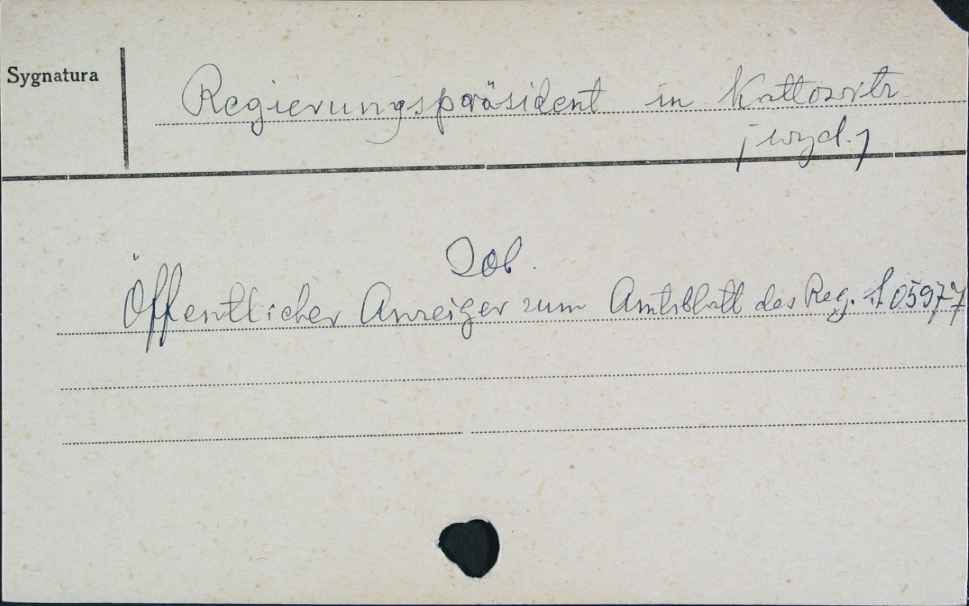 Sygnatura
Regierungspräsident in Kattowitz
/wyd./
Zob.
Öffentlicher Anzeiger zum Amtsblatt des Reg. 105977